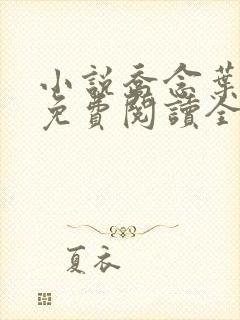 小說喬念葉
免費閱讀全
夏衣